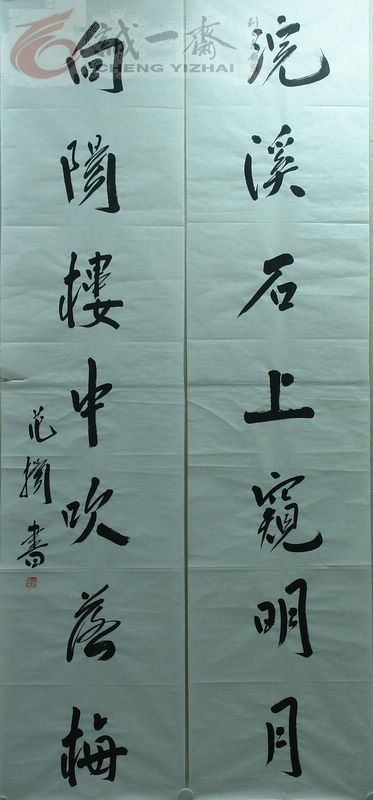 浣溪石上窺明月
向陽樓中吹落梅
范楊書
誠一齋
CHENG YIZHAI